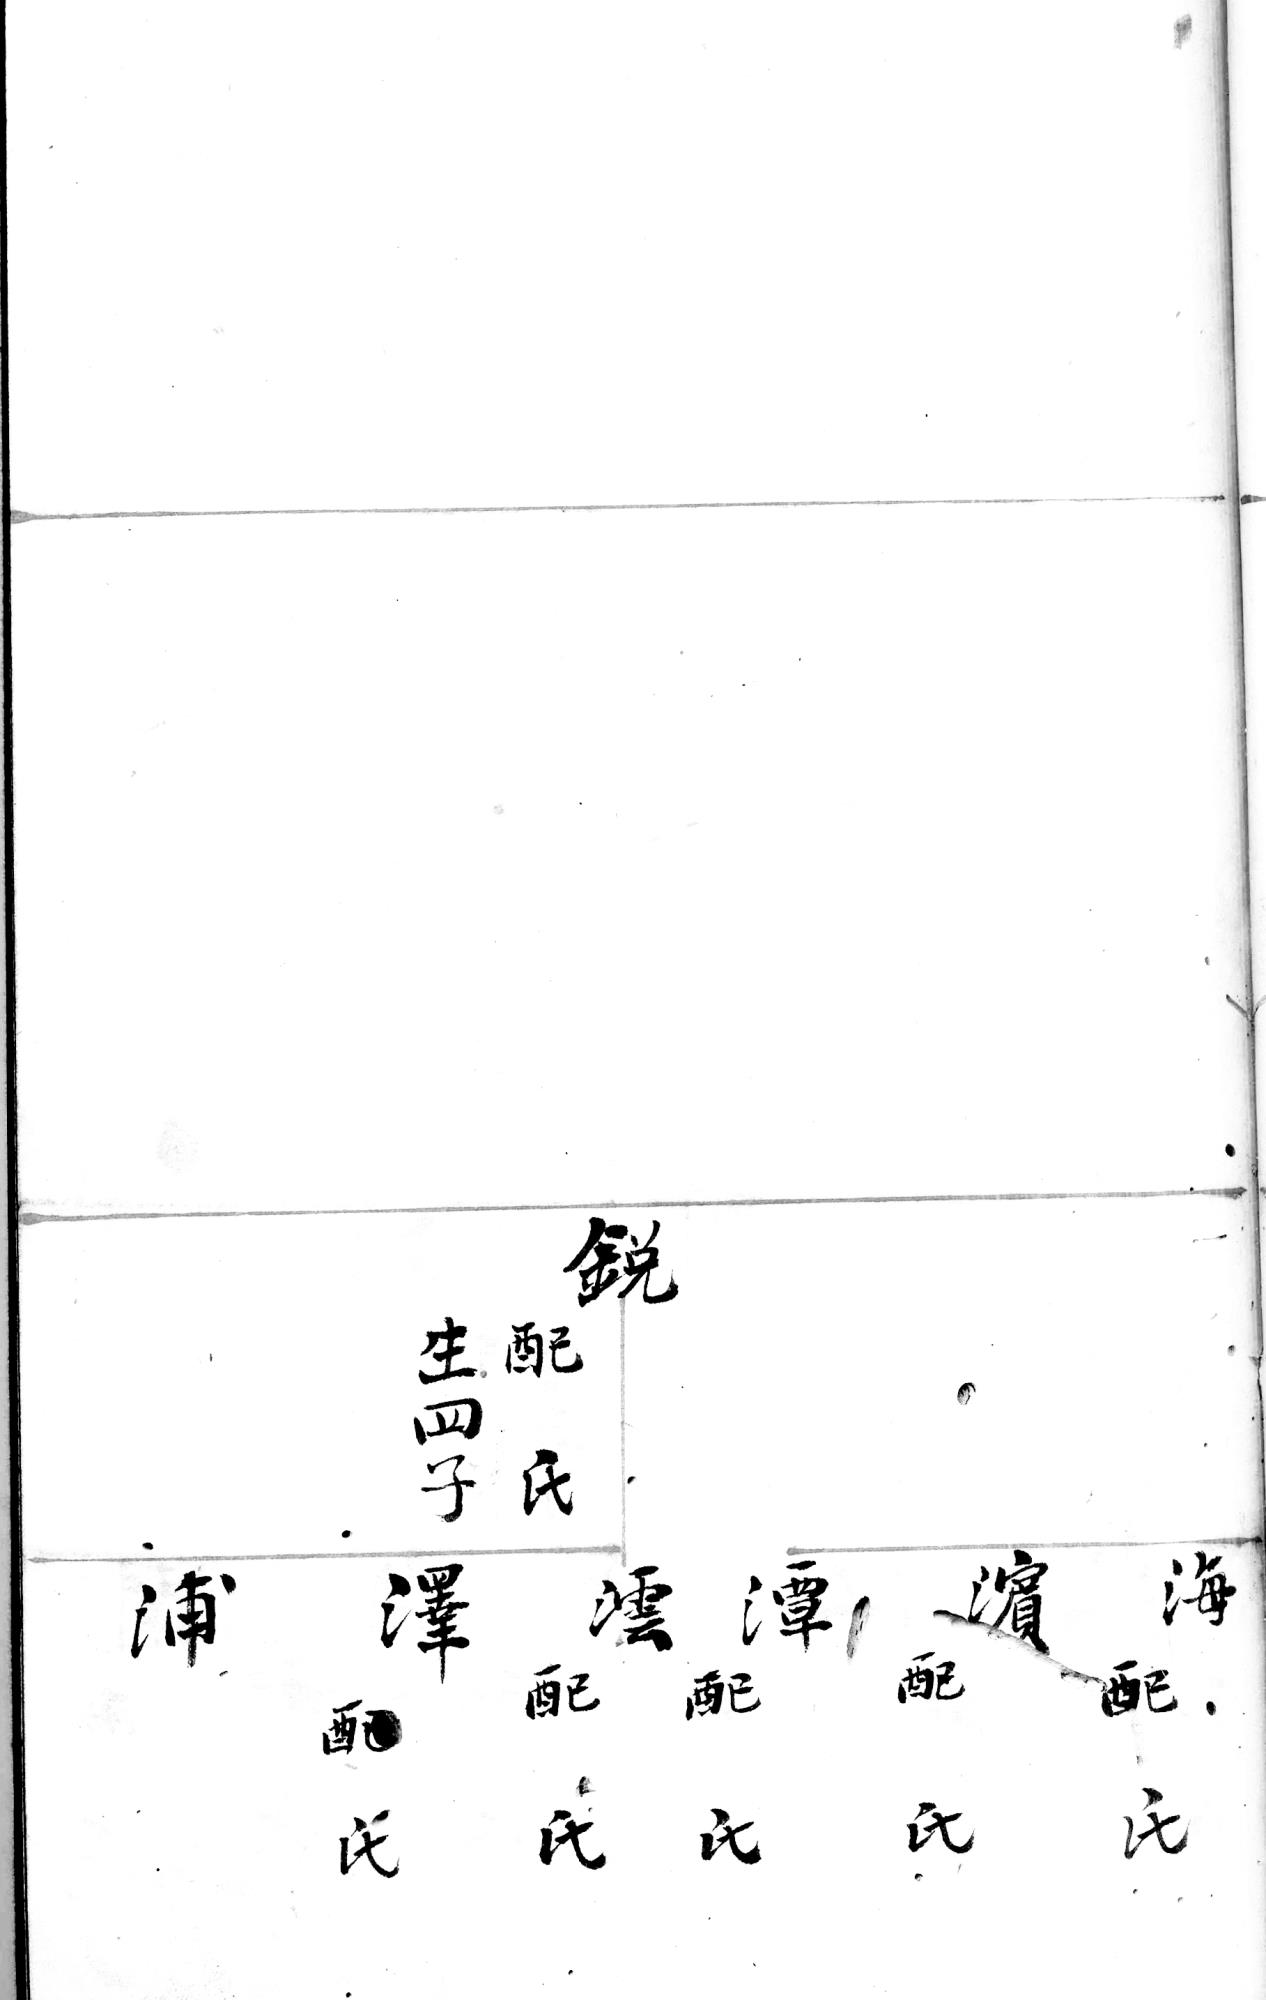 鋭
配 氏
生四子
海
配 氏
濱
配 氏
潭
配 氏
澐
配 氏
澤
配 氏
浦